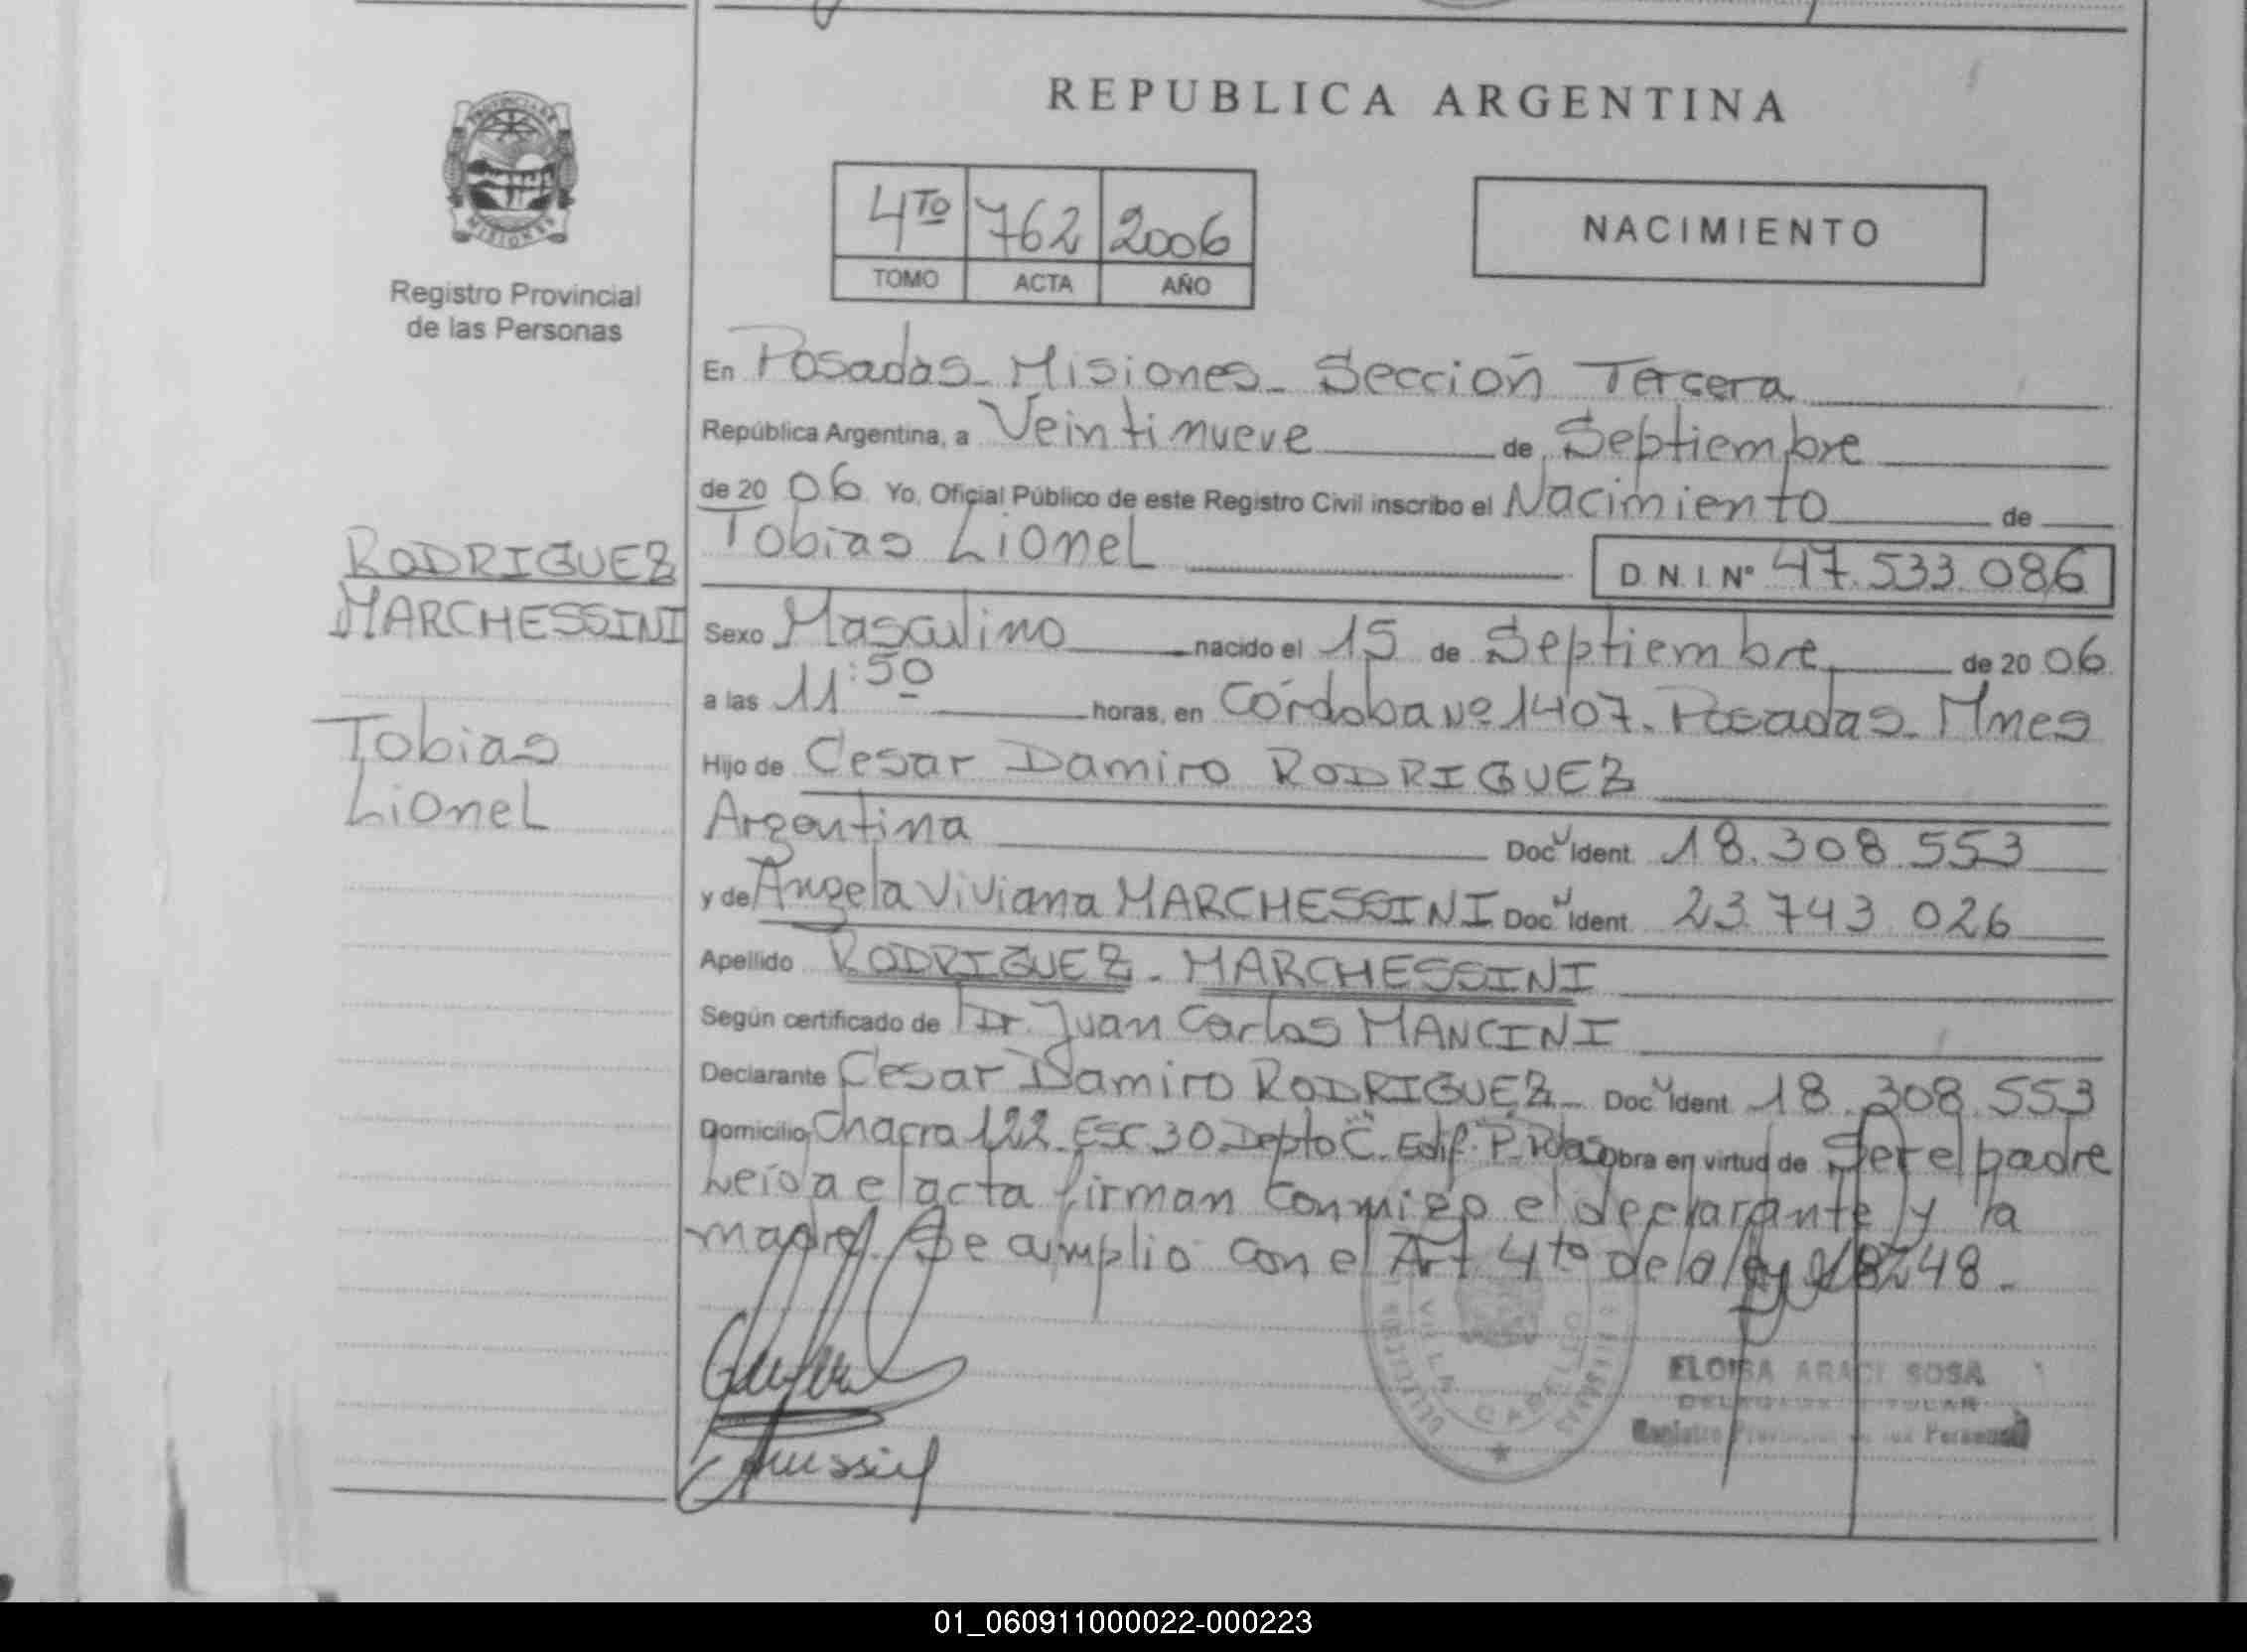 REPUBLICA ARGENTINA
PROVINCIA DE
MISIONES
Registro Provincial
de las Personas
4TO 762 2006
TOMO ACTA AÑO
NACIMIENTO
En Posadas - Misiones - Sección Tercera
República Argentina, a Veintinueve de Septiembre
de 20 06 Yo, Oficial Público de este Registro Civil inscribo el Nacimiento de
Tobias Lionel
D.N.I. Nº 47.533.086
RODRIGUEZ
MARCHESSINI
Tobias
Lionel
Sexo Masculino nacido el 15 de Septiembre de 20 06
a las 11:50 horas, en Córdoba Nº 1407. Posadas - Mnes
Hijo de Cesar Damiro RODRIGUEZ
Argentina Doc U Ident. 18.308.553
y de Angela Viviana MARCHESSINI Doc U Ident. 23.743.026
Apellido RODRIGUEZ - MARCHESSINI
Según certificado de Dr. Juan Carlos MANCINI
Declarante Cesar Damiro RODRIGUEZ - Doc U Ident. 18.308.553
Domicilio Chacra 122 - ESC 30 Depto "C" - Edif. P. Obra en virtud de Ser el padre
Leída el acta firman conmigo el declarante y la
madre. Se cumplio con el Art 4to de la ley 18248 -
VILLA CABELLO
ELOISA ARACI SOSA
DELEGADA TITULAR
Registro Provincial de las Personas
01_060911000022-000223